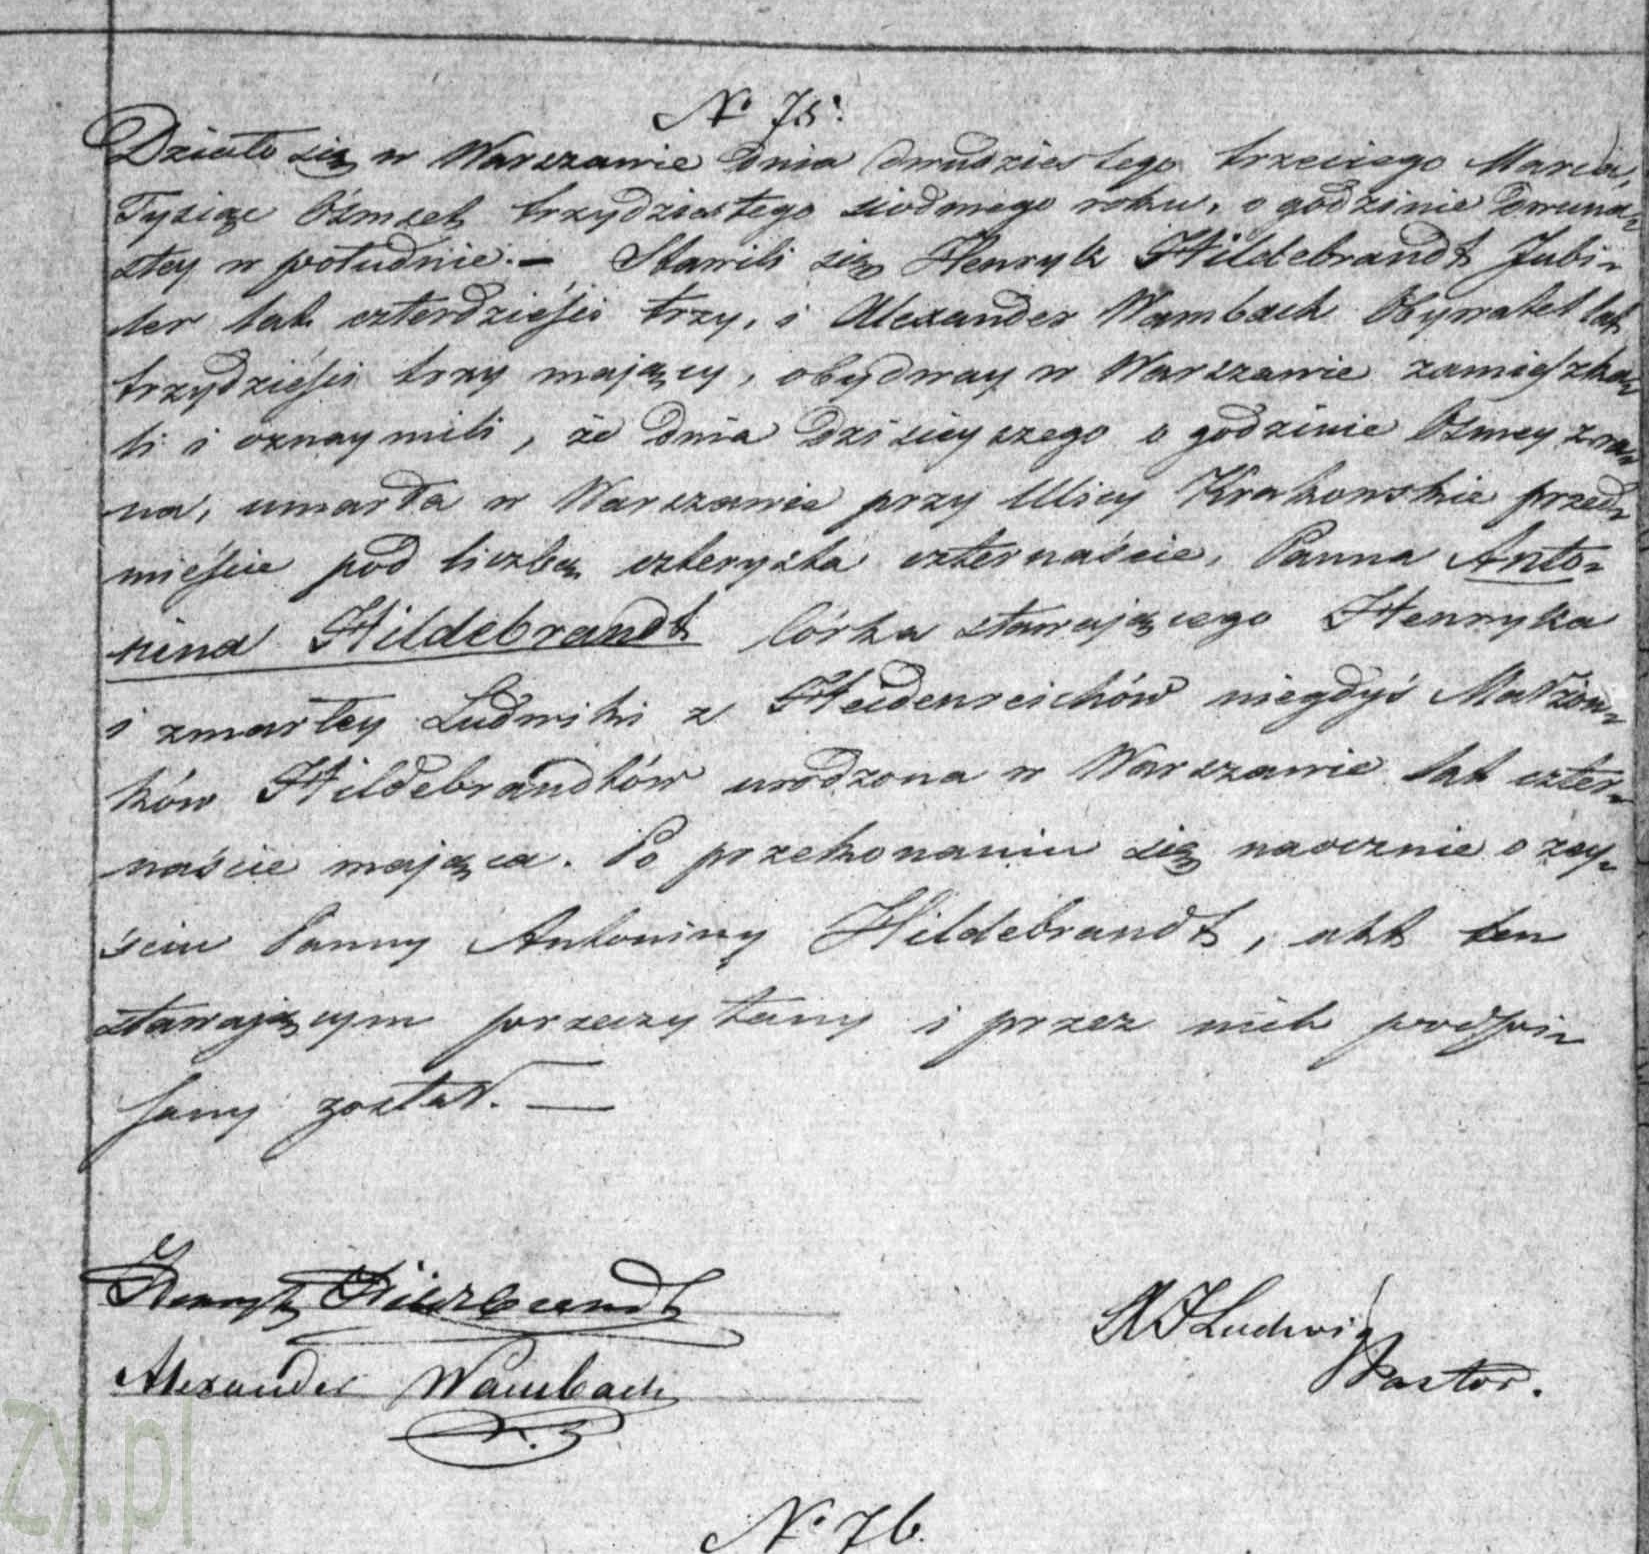 N° 75.
Działo się w Warszawie Dnia dwudziestego trzeciego Marca,
Tysiąc Ośmset trzydziestego siódmego roku, o godzinie Dwuna-
stey w południe. – Stawili się Henryk Hildebrandt Jubi-
ler lat czterdzieści trzy, i Alexander Wambach Obywatel lat
trzydzieści trzy mający, obydway w Warszawie zamieszka-
li i oznaymili, że Dnia Dzisieyszego o godzinie Ósmey zra-
na, umarła w Warszawie przy Ulicy Krakowskie przed-
mieście pod liczbą czterysta czternaście, Panna Anto-
nina Hildebrandt Córka stawającego Henryka
i zmarłey Ludwiki z Heidenreichów niegdyś Małżon-
ków Hildebrandtów urodzona w Warszawie lat czter-
naście mająca. Po przekonaniu się naocznie o zey-
ściu Panny Antoniny Hildebrandt, akt ten
stawającym przeczytany i przez nich podpi-
sany został. —
Henryk Hildebrandt
Alexander Wambach
Ludwig
Pastor.
zy.pl
N° 76.